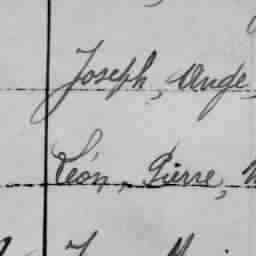 Joseph, Ange,
Léon, Pierre,